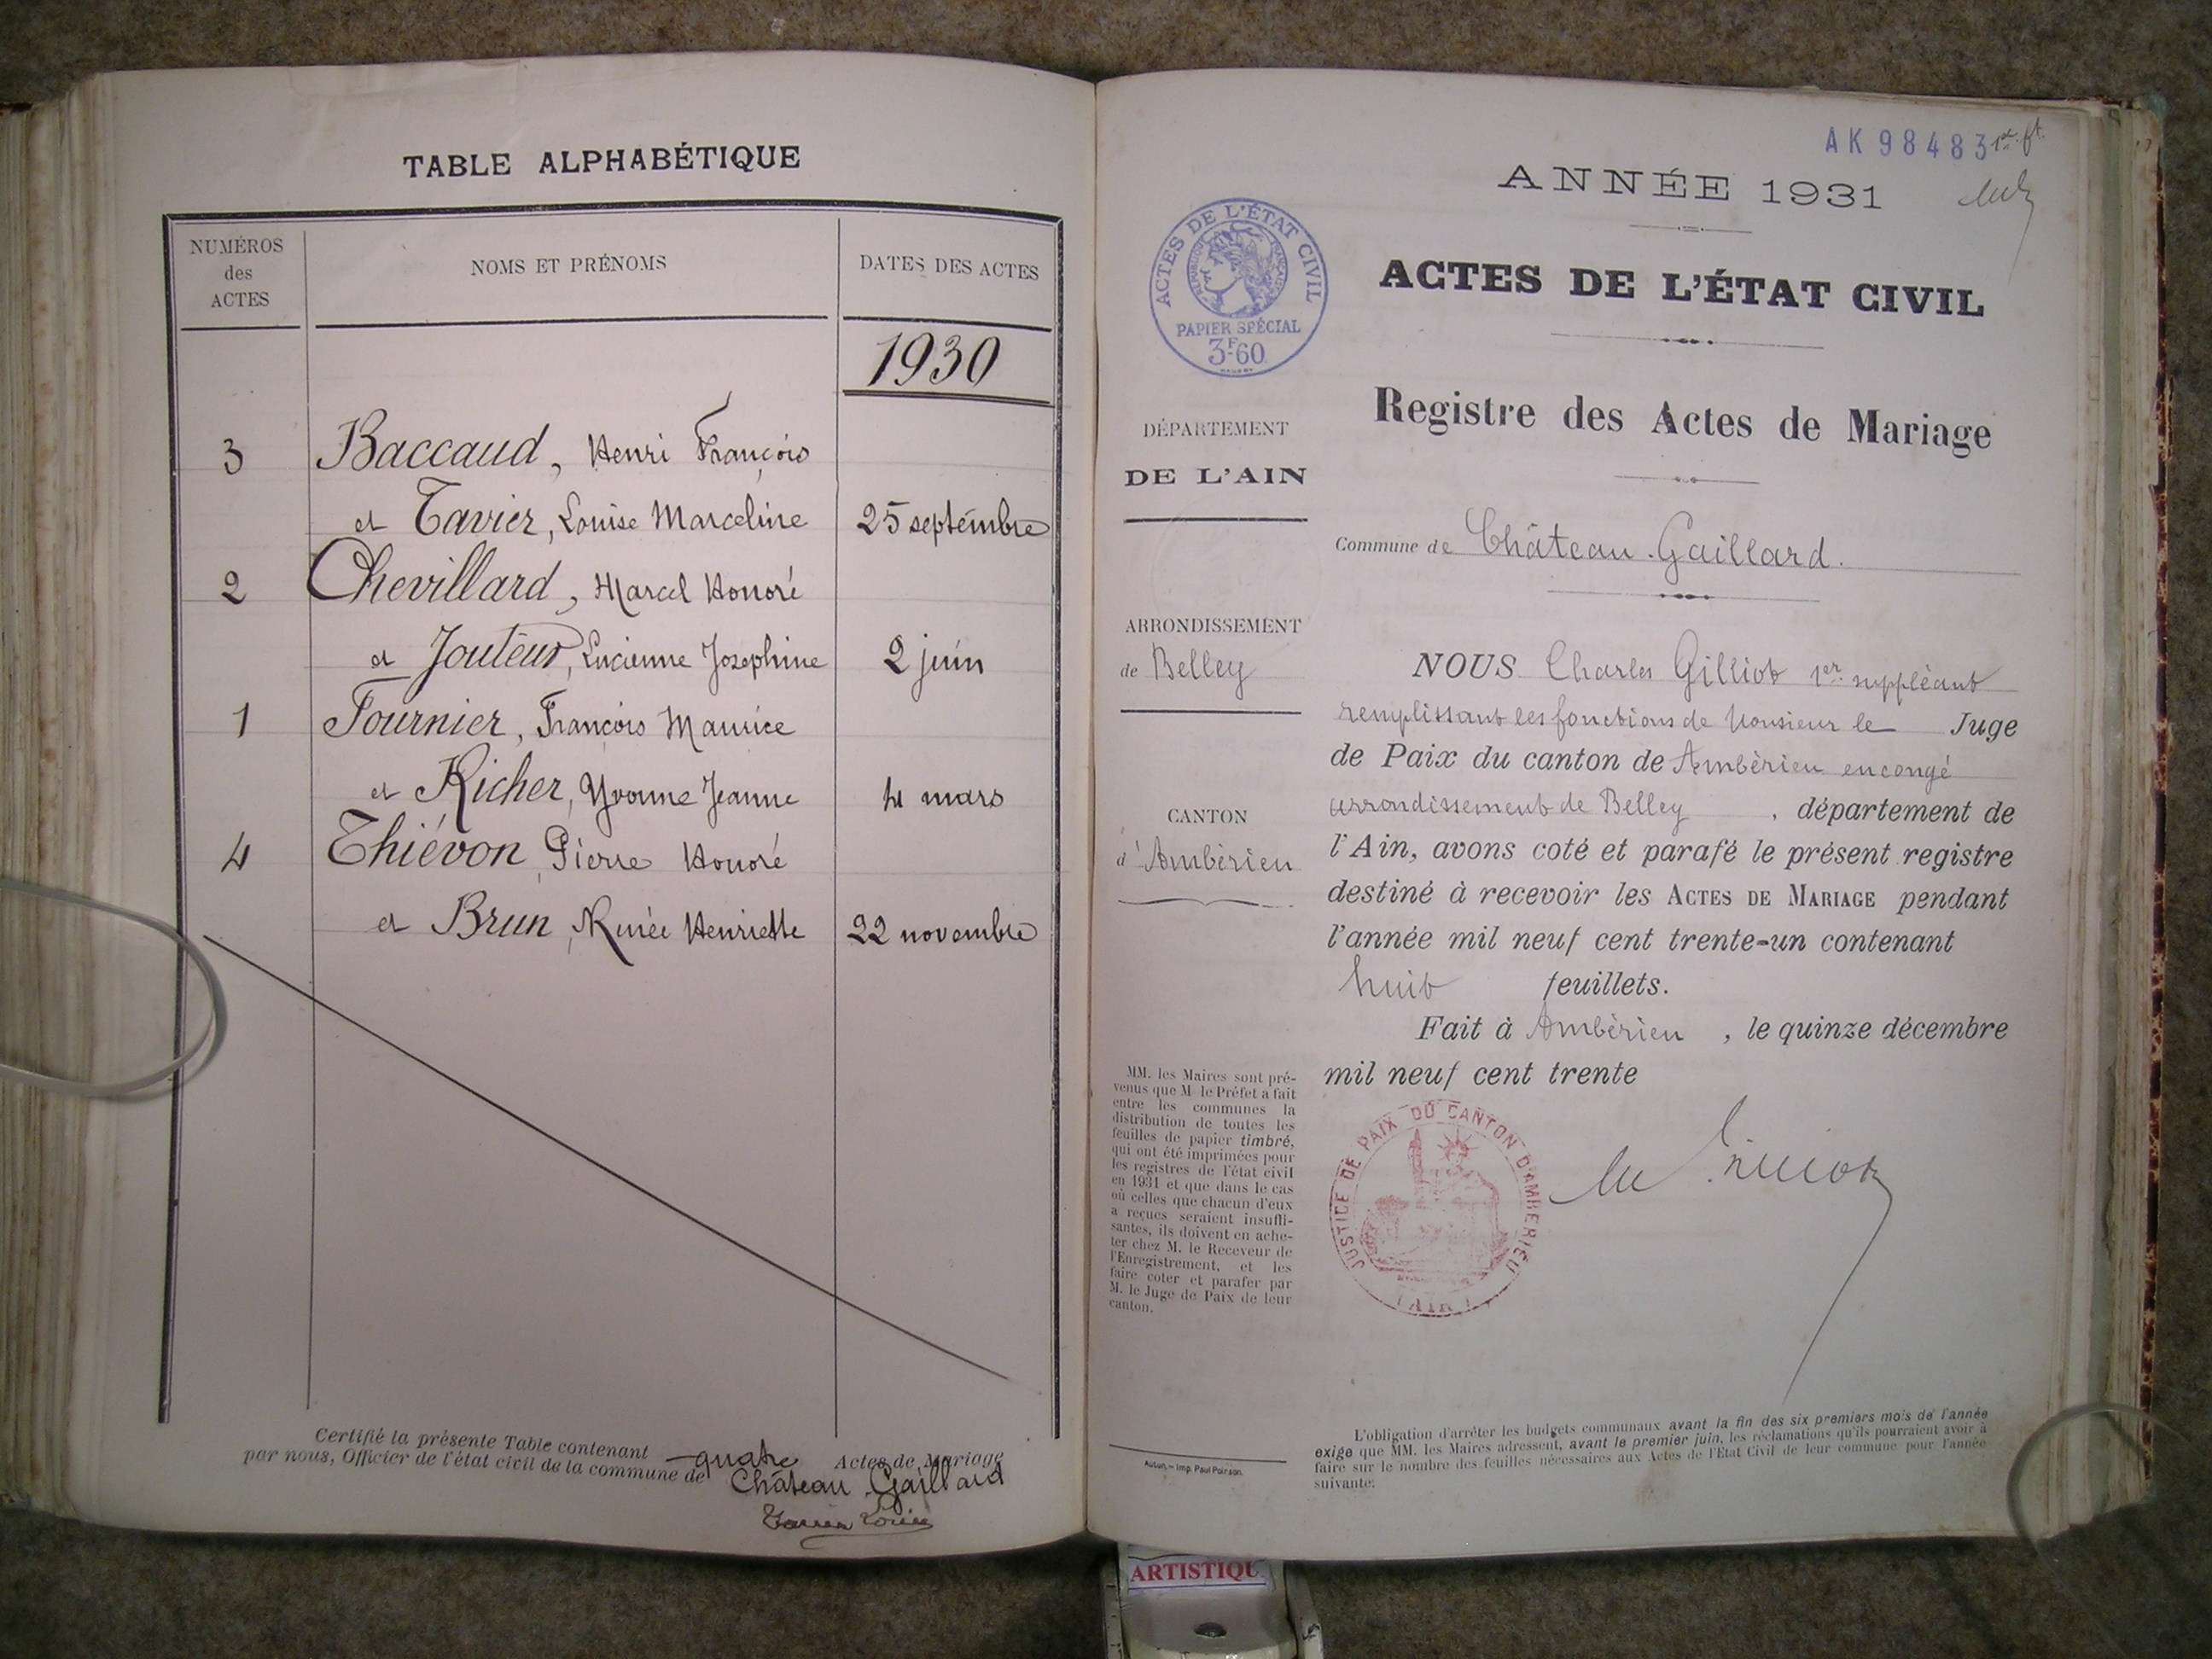 TABLE ALPHABÉTIQUE
NUMÉROS
des
ACTES
NOMS ET PRÉNOMS
DATES DES ACTES
1930
3 Baccaud, Henri François
et Tavier, Louise Marceline 25 septembre
2 Chevillard, Marcel Honoré
et Jouteur, Lucienne Josephine 2 juin
1 Fournier, François Maurice
et Richer, Yvonne Jeanne 4 mars
4 Thiévon, Pierre Honoré
et Brun, Renée Henriette 22 novembre
Certifié la présente Table contenant quatre Actes de Mariage
par nous, Officier de l'état civil de la commune de Château Gaillard
AK 98483 1er ft.
ANNÉE 1931
ACTES DE L'ÉTAT CIVIL
RÉPUBLIQUE FRANÇAISE
PAPIER SPÉCIAL
3F60
ACTES DE L'ÉTAT CIVIL
Registre des Actes de Mariage
DÉPARTEMENT
DE L'AIN
Commune de Château-Gaillard.
ARRONDISSEMENT
de Belley
CANTON
d'Ambérieu
NOUS Charles Gilliot 1er suppléant
remplissant les fonctions de Monsieur le Juge
de Paix du canton de Ambérieu en congé
arrondissement de Belley, département de
l'Ain, avons coté et parafé le présent registre
destiné à recevoir les ACTES DE MARIAGE pendant
l'année mil neuf cent trente-un contenant
huit feuillets.
Fait à Ambérieu, le quinze décembre
mil neuf cent trente
MM. les Maires sont pré-
venus que M. le Préfet a fait
entre les communes la
distribution de toutes les
feuilles de papier timbré,
qui ont été imprimées pour
les registres de l'état civil
en 1931 et que dans le cas
où celles que chacun d'eux
a reçues seraient insuffi-
santes, ils doivent en ache-
ter chez M. le Receveur de
l'Enregistrement, et les
faire coter et parafer par
M. le Juge de Paix de leur
canton.
JUSTICE DE PAIX DU CANTON D'AMBERIEU
(AIN)
Autun. — Imp. Paul Poirson.
L'obligation d'arrêter les budgets communaux avant la fin des six premiers mois de l'année
exige que MM. les Maires adressent, avant le premier juin, les réclamations qu'ils pourraient avoir à
faire sur le nombre des feuilles nécessaires aux Actes de l'Etat Civil de leur commune pour l'année
suivante.
ARTISTIQU